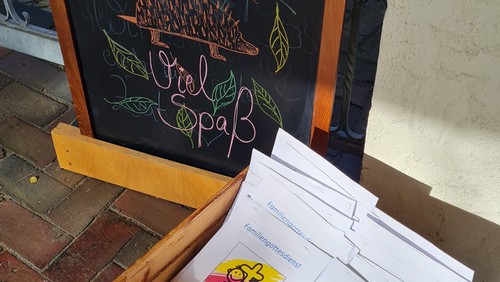 Viel
Spaß
Familiengottesd
Familiengottesdienst